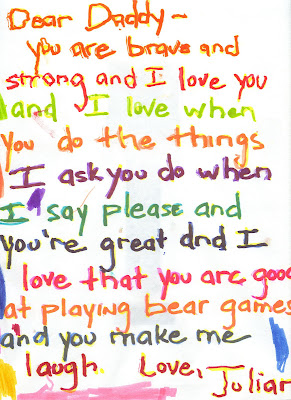 Dear Daddy~
you are brave and
strong and I love you
and I love when
you do the things
I ask you do when
I say please and
you're great and I
love that you are good
at playing bear games
and you make me
laugh. Love, Julian